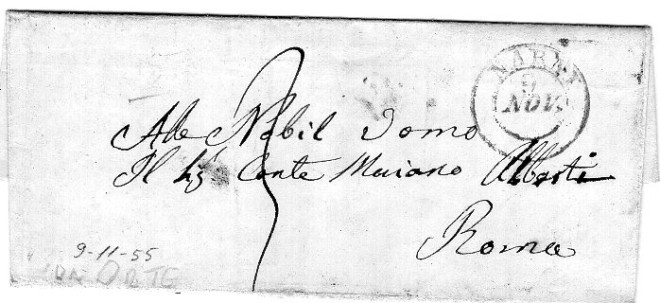 NARNI
9
NOV
3
Al Nobil Uomo
Il Sig. Conte Maiano Alberti
Roma
9-11-55
DA ORTE